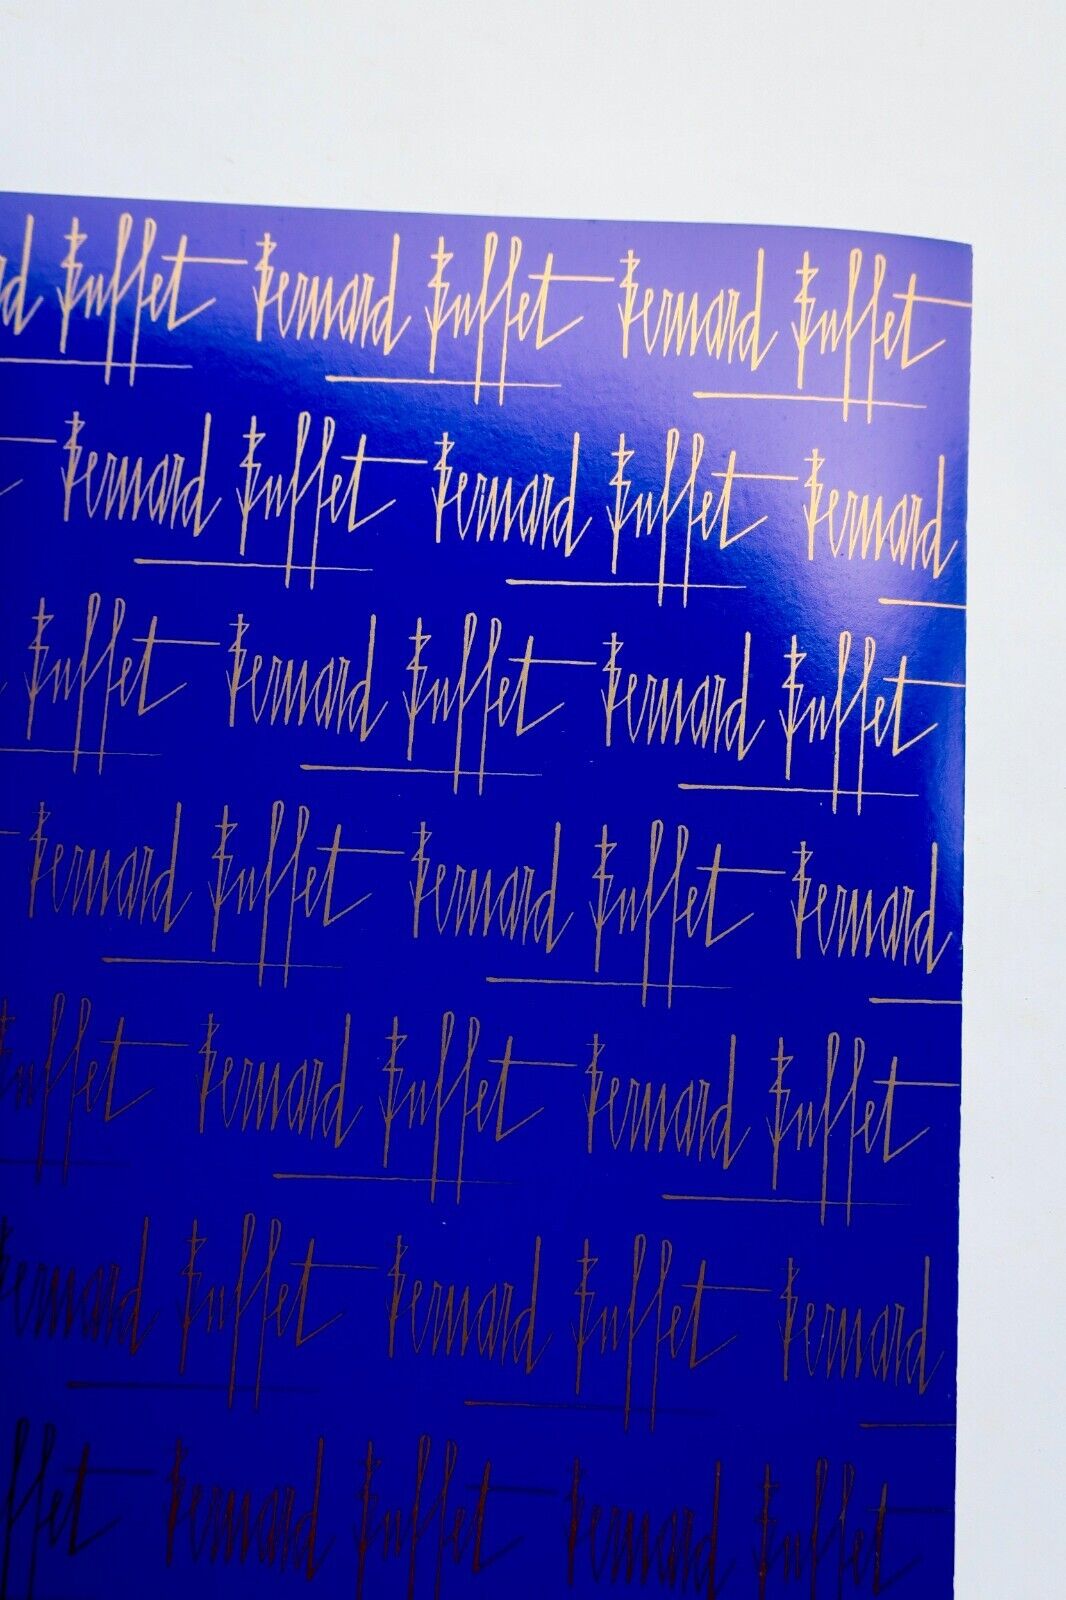 Bernard Buffet Bernard Buffet Bernard Buffet
Bernard Buffet Bernard Buffet Bernard
Buffet Bernard Buffet Bernard Buffet
Bernard Buffet Bernard Buffet Bernard
Buffet Bernard Buffet Bernard Buffet
Bernard Buffet Bernard Buffet Bernard
Buffet Bernard Buffet Bernard Buffet